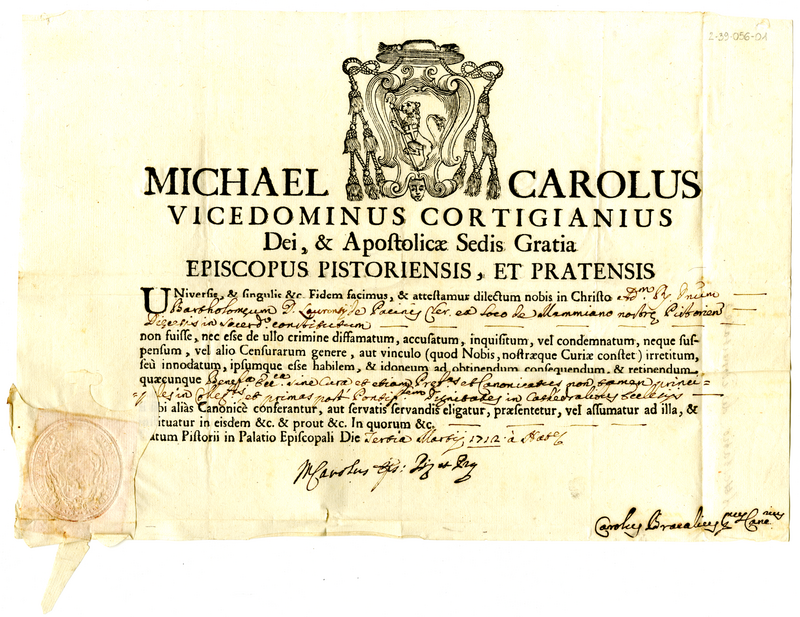 2-39-056-01
MICHAEL CAROLUS
VICEDOMINUS CORTIGIANIUS
Dei, & Apostolicæ Sedis Gratia
EPISCOPUS PISTORIENSIS, ET PRATENSIS
UNiversis, & singulis &c. Fidem facimus, & attestamur dilectum nobis in Christo Adm. R. Dnum
Bartholomæum D. Laurentij de Pacinis Cler. ex Loco de Mammiano nostræ Pistorien
Diecesis in Sacerd. constitutum
non fuisse, nec esse de ullo crimine diffamatum, accusatum, inquisitum, vel condemnatum, neque sus-
pensum, vel alio Censurarum genere, aut vinculo (quod Nobis, nostræque Curiæ constet) irretitum,
seù innodatum, ipsumque esse habilem, & idoneum ad obtinendum consequendum, & retinendum
quæcunque Benefia Ecca. sine Cura et etiam et Canonicatus non tamen princi-
les in et primas post Dignitates in Cathedralibus Ecclesijs
bi aliàs Canonicè conferantur, aut servatis servandis eligatur, præsentetur, vel assumatur ad illa, &
ituatur in eisdem &c. & prout &c. In quorum &c.
atum Pistorii in Palatio Episcopali Die Tertia Martij 1712 à
MCarolus Eps:
Carolus